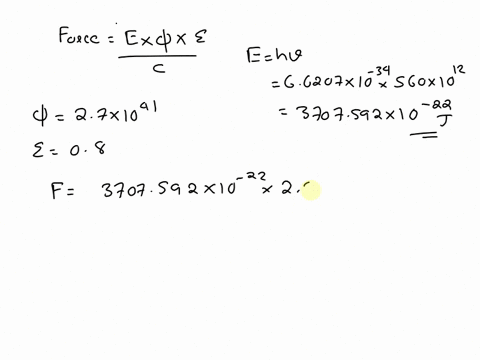 Force = E×ϕ×ε / c
E=hν
= 6.6207×10^-34 × 560×10^12
= 3707.592×10^-22 J
ϕ = 2.7×10^41
ε = 0.8
F = 3707.592×10^-22 × 2.